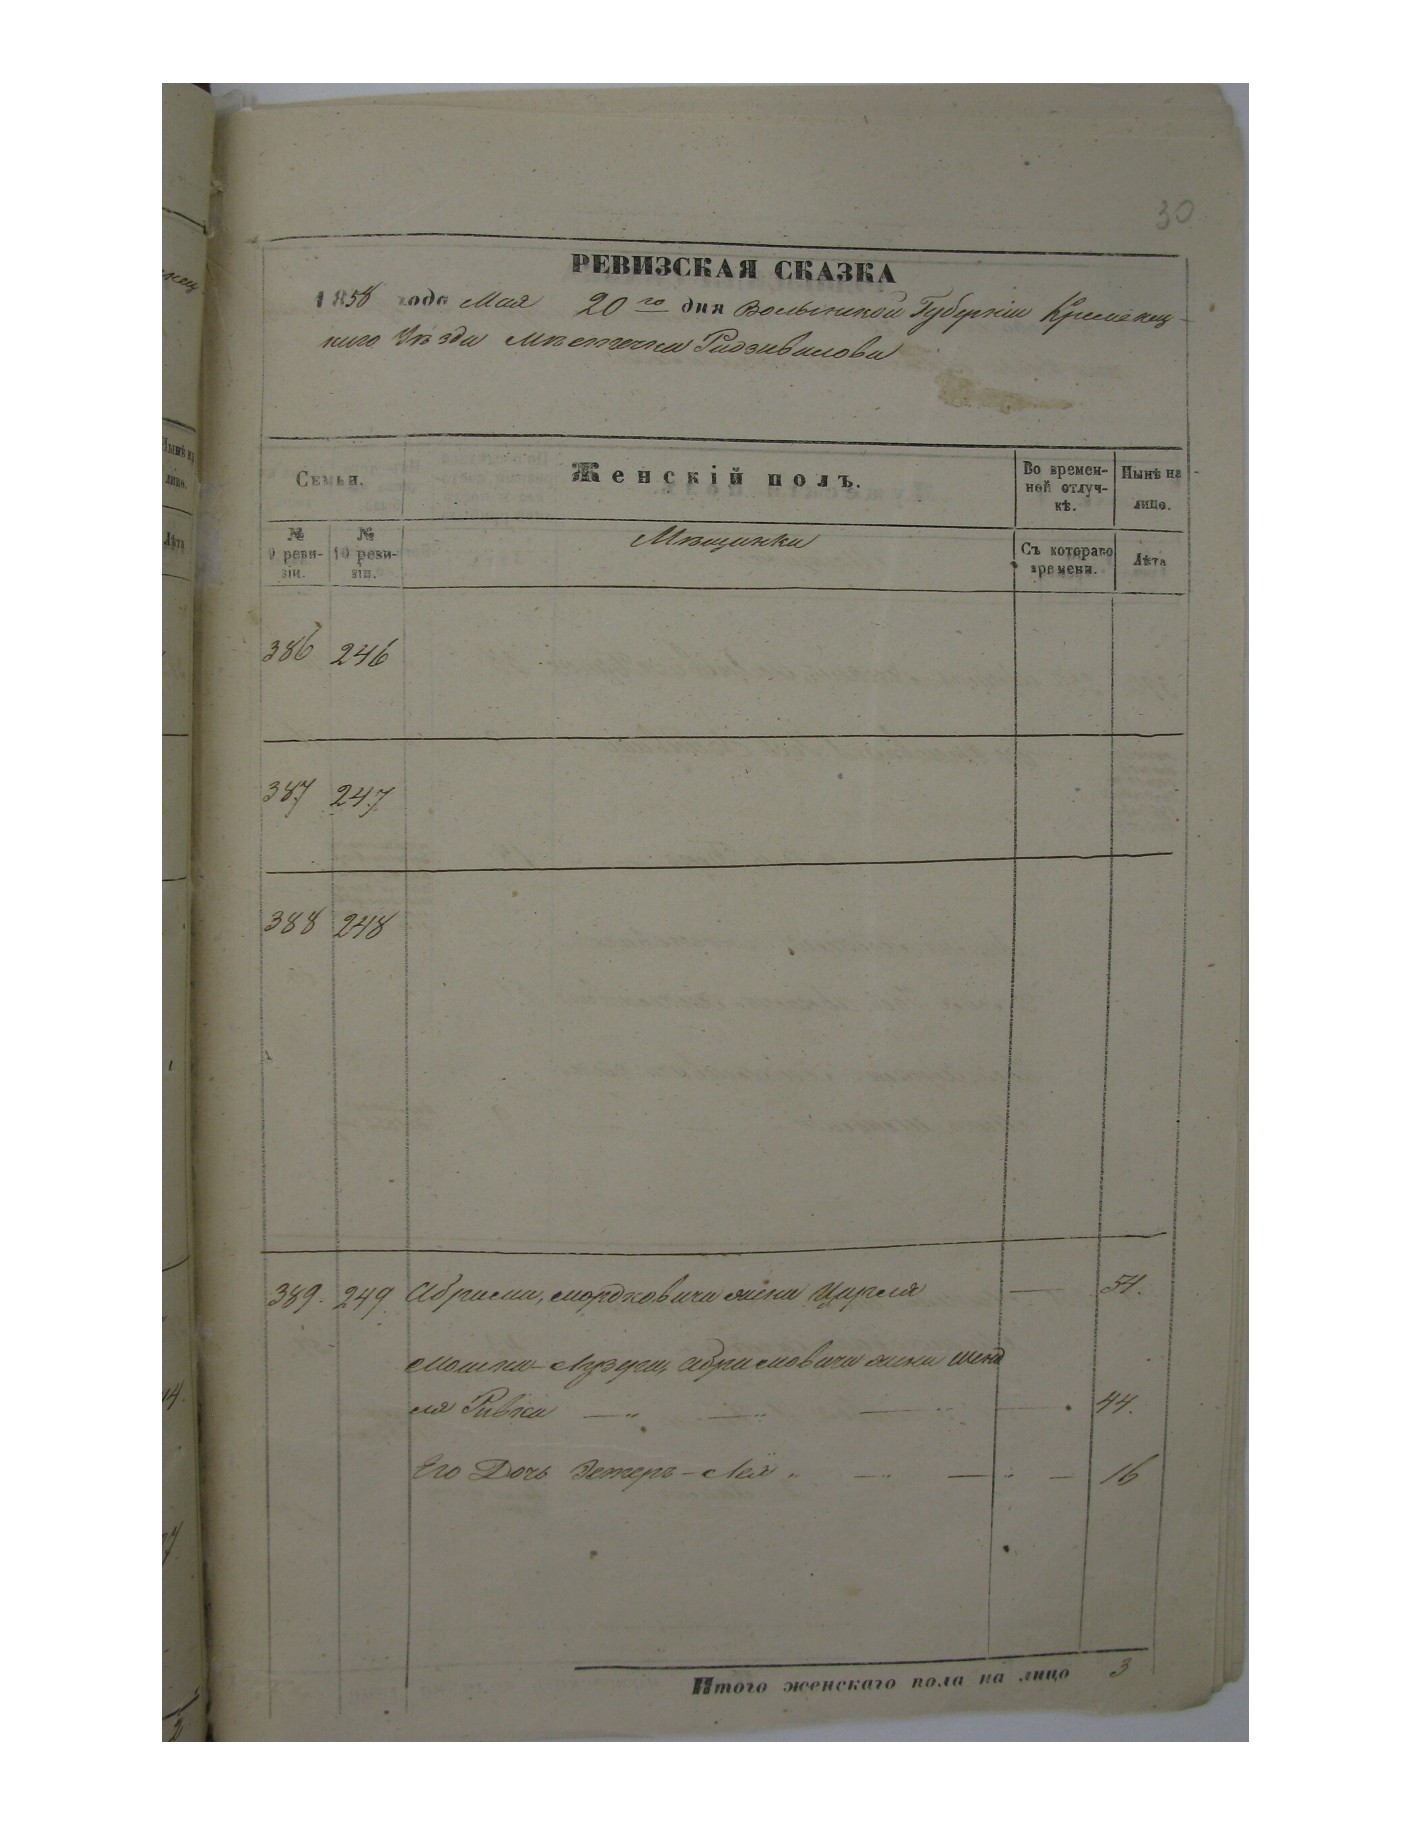 30
РЕВИЗСКАЯ СКАЗКА
1858 года Мая 20го дня Волынской Губерніи Кременец-
каго Уѣзда Мѣстечка Радзивилова
Семьи.
Женскій полъ.
Во времен-
ной отлуч-
кѣ.
Нынѣ на
лицо.
№
9 реви-
зіи.
№
10 реви-
зіи.
Мѣщанки
Съ котораго
времени.
Лѣта
386 246
387 247
388 248
389. 249. Абрама, Мордковича жена Цирля — 54.
Мошка-Лузера, Абрамовича жена Шенд
ля Ривка — „ — „ — „ — 44.
Его Дочь Эстеръ-Лея „ — „ — „ — 16
Итого женскаго пола на лицо 3